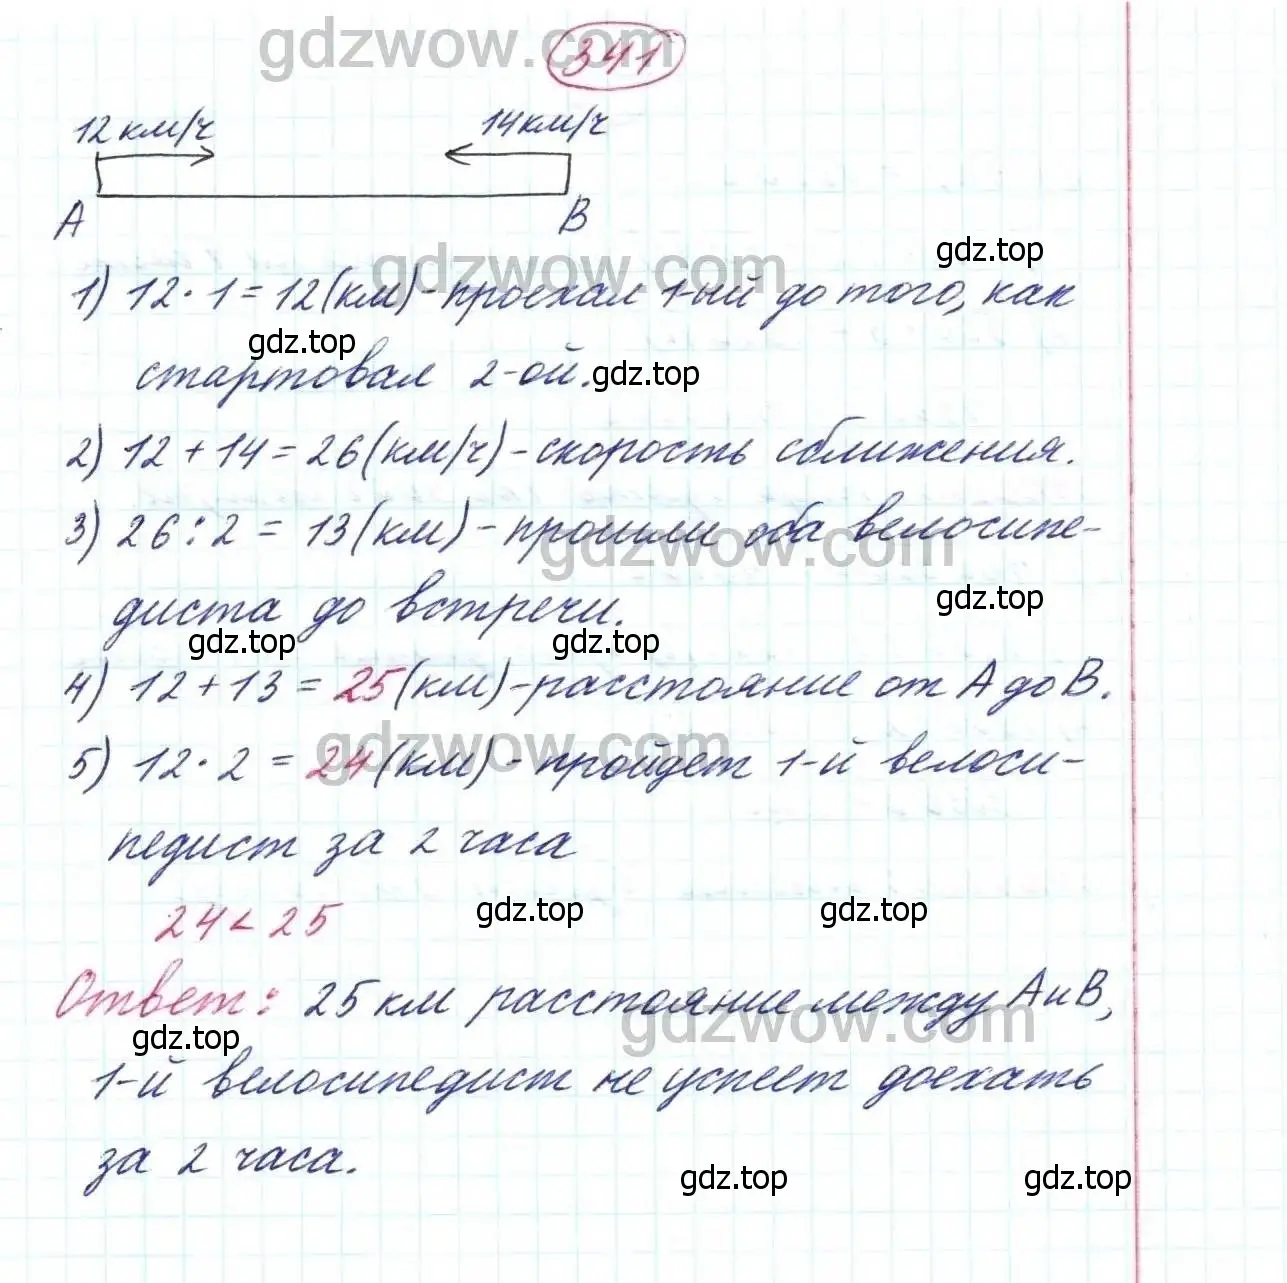 gdzwow.com
341
12 км/ч 14 км/ч
А В
gdzwow.com
gdz.top
1) 12 · 1 = 12 (км) - проехал 1-ый до того, как
gdz.top
стартовал 2-ой.
gdz.top
2) 12 + 14 = 26 (км/ч) - скорость сближения.
3) 26 : 2 = 13 (км) - прошли оба велосипе-
gdzwow.com
диста до встречи.
gdz.top
gdz.top gdz.top
4) 12 + 13 = 25 (км) - расстояние от А до В.
gdzwow.com
5) 12 · 2 = 24 (км) - пройдет 1-й велоси-
педист за 2 часа
24 < 25
gdz.top gdz.top
Ответ: 25 км расстояние между А и В,
gdzwow.com
gdz.top
1-й велосипедист не успеет доехать
за 2 часа.
gdz.top gdz.top